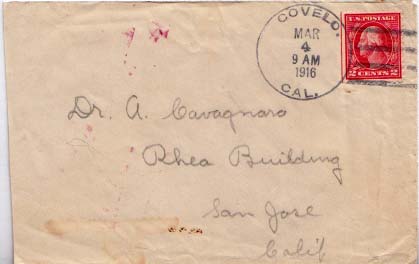 COVELO.
MAR
4
9 AM
1916
CAL.
U.S. POSTAGE
2 CENTS 2
Dr. A. Cavagnaro
Rhea Building
San Jose
Calif